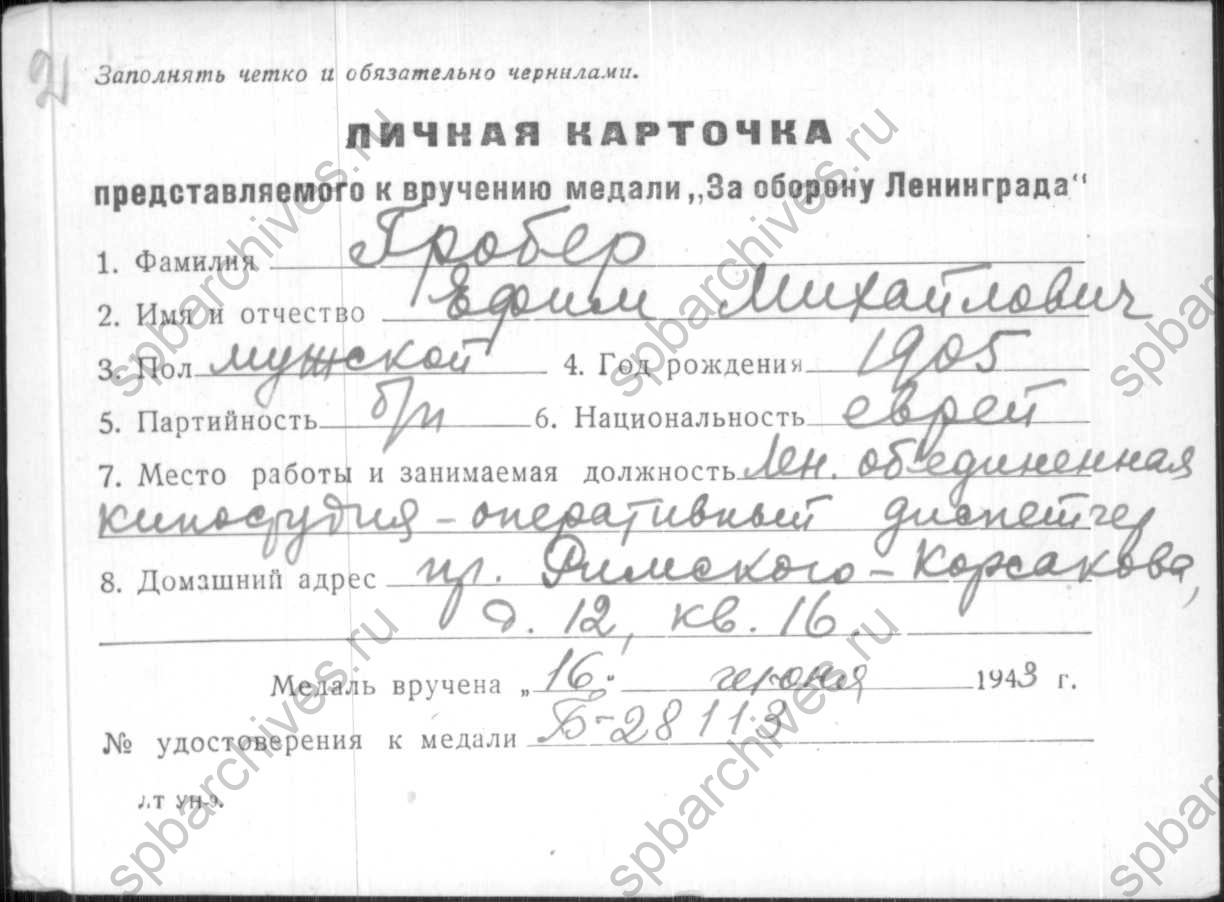 21
Заполнять четко и обязательно чернилами.
ЛИЧНАЯ КАРТОЧКА
представляемого к вручению медали „За оборону Ленинграда"
1. Фамилия Гробер
2. Имя и отчество Ефим Михайлович
3. Пол мужской 4. Год рождения 1905
5. Партийность б/п 6. Национальность еврей
7. Место работы и занимаемая должность Лен. объединенная
киностудия – оперативный диспетчер
8. Домашний адрес пр. Римского-Корсакова,
д. 12, кв. 16.
Медаль вручена „16" июня 1943 г.
№ удостоверения к медали Б-28113
ЛТ УН-9.
spbarchives.ru